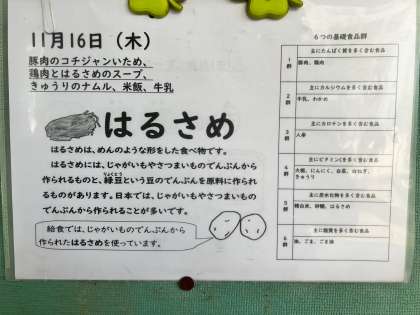 11月16日（木）
豚肉のコチジャンいため、
鶏肉とはるさめのスープ、
きゅうりのナムル、米飯、牛乳
はるさめ
はるさめは、めんのような形をした食べ物です。
はるさめには、じゃがいもやさつまいものでんぷんから
作られるものと、緑豆という豆のでんぷんを原料に作られ
りょくとう
るものがあります。日本では、じゃがいもやさつまいもの
でんぷんから作られることが多いです。
給食では、じゃがいものでんぷんから
作られたはるさめを使っています。
6つの基礎食品群
1群
主にたんぱく質を多く含む食品
豚肉、鶏肉
2群
主にカルシウムを多く含む食品
牛乳、わかめ
3群
主にカロテンを多く含む食品
人参
4群
主にビタミンCを多く含む食品
大根、にんにく、白菜、白ねぎ、
きゅうり
5群
主に炭水化物を多く含む食品
精白米、砂糖、はるさめ
6群
主に脂質を多く含む食品
油、ごま、ごま油